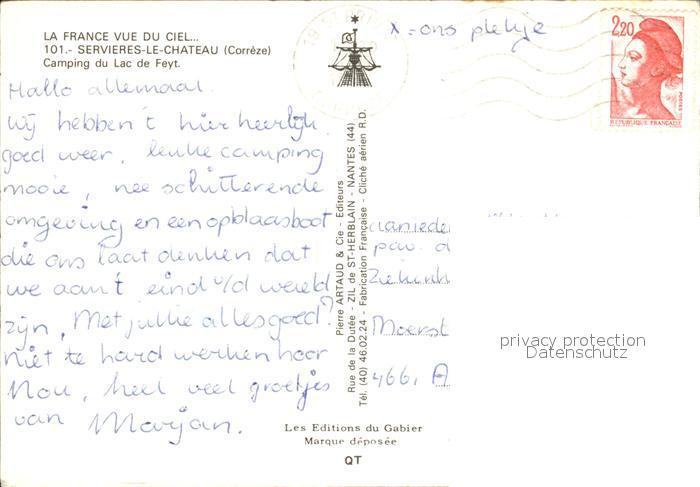 LA FRANCE VUE DU CIEL...
101.- SERVIERES-LE-CHATEAU (Corrèze)
Camping du Lac de Feyt.
x = ons plekje
2,20
POSTES
REPUBLIQUE FRANÇAISE
Hallo allemaal.
Wij hebben 't hier heerlijk.
goed weer, leuke camping
mooie, nee schitterende
omgeving en een opblaasboot
die ons laat denken dat
we aan 't eind v/d wereld
zijn, Met jullie alles goed?
niet te hard werken hoor
Nou, heel veel groetjes
van Marjan.
Pierre ARTAUD & Cie - Editeurs
Rue de la Dutée - ZIL de ST-HERBLAIN - NANTES (44)
Tél. (40) 46.02.24 - Fabrication Française - Cliché aérien R.D.
aan ieder
pav. d
Moerst
466, A
privacy protection
Datenschutz
Les Editions du Gabier
Marque déposée
QT